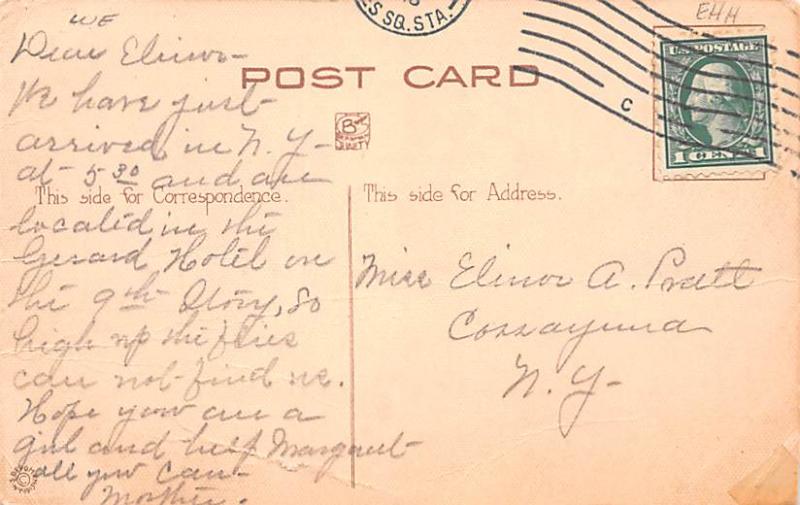 WE
EHH
S SQ. STA.
C
U.S. POSTAGE
1 CENT 1
POST CARD
BS
QUALITY
Dear Elinor-
We have just
arrived in N.Y-
at 5 30 and are
This side for Correspondence.
located in the
Gerard Hotel on
the 9th Story, so
high up the flies
can not find us.
Hope you are a
girl and help Margaret
all you can-
Mother.
This side for Address.
Miss Elinor A. Pratt
Cossayuna
N.Y-